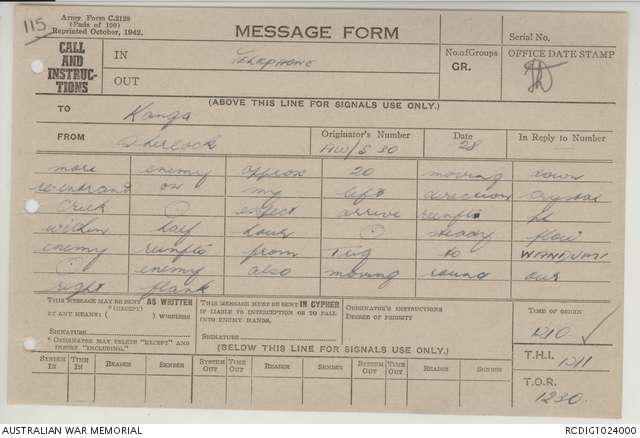 115
Army Form C.2128
(Pads of 100)
Reprinted October, 1942.
MESSAGE FORM
Serial No.
CALL AND INSTRUC-TIONS
IN Telephone
OUT
No. of Groups
GR.
OFFICE DATE STAMP
(ABOVE THIS LINE FOR SIGNALS USE ONLY.)
TO Kanga
FROM Sherlock
Originator's Number AW/S 30
Date 28
In Reply to Number
more enemy approx 20 moving down
re-entrant on my left direction Crystal
Creek . expect arrive reinfts pl
within half hour . steady flow
enemy reinfts from to WANDUMI
. enemy also moving round our
right flank
THIS MESSAGE MAY BE SENT AS WRITTEN
*(EXCEPT)
BY ANY MEANS ( ) WIRELESS
SIGNATURE
* ORIGINATOR MAY DELETE "EXCEPT" AND INSERT "INCLUDING."
THIS MESSAGE MUST BE SENT IN CIPHER
IF LIABLE TO INTERCEPTION OR TO FALL INTO ENEMY HANDS.
SIGNATURE
ORIGINATOR'S INSTRUCTIONS
DEGREE OF PRIORITY
TIME OF ORIGIN
1210
T.H.I. 1211
T.O.R.
1230.
(BELOW THIS LINE FOR SIGNALS USE ONLY.)
SYSTEM IN TIME IN READER SENDER SYSTEM OUT TIME OUT READER SENDER SYSTEM OUT TIME OUT READER SENDER
AUSTRALIAN WAR MEMORIAL
RCDIG1024000